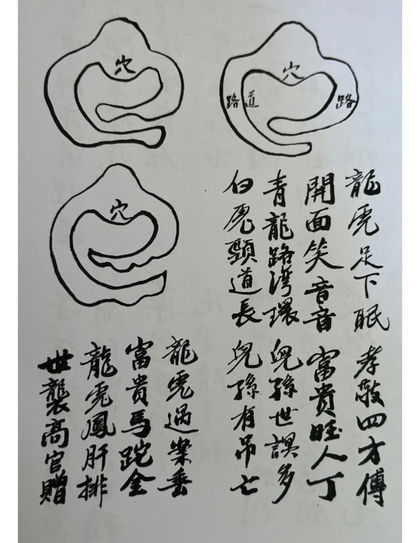 穴
穴
路
道
路
穴
龍虎足下眠 孝敬四方傳
開面笑音音 富貴旺人丁
青龍路灣環 兒孫世誤多
白虎道長 兒孫有吊亡
龍虎過案垂
富貴馬跎金
龍虎鳳肝排
世襲高官贈